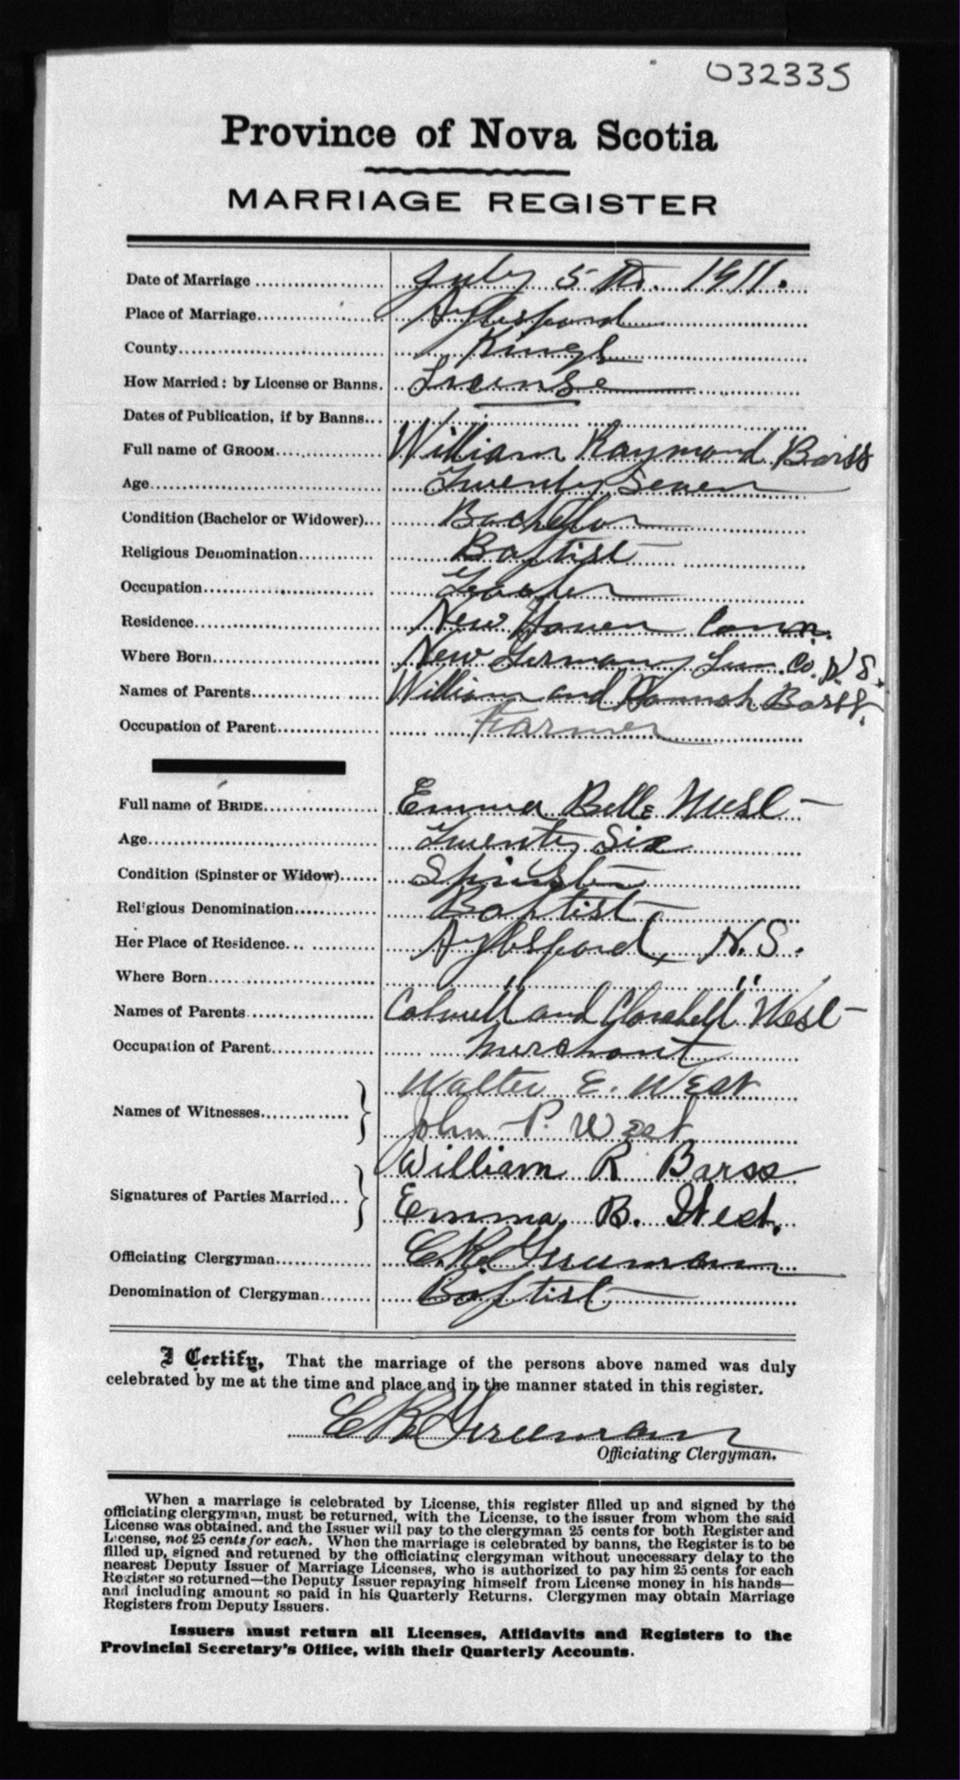 032335
Province of Nova Scotia
MARRIAGE REGISTER
Date of Marriage July 5th. 1911.
Place of Marriage Aylesford
County Kings
How Married: by License or Banns. License
Dates of Publication, if by Banns
Full name of GROOM William Raymond Barss
Age Twenty Seven
Condition (Bachelor or Widower) Bachelor
Religious Denomination Baptist
Occupation Teacher
Residence New Haven Conn.
Where Born New Germany Lun. Co. N.S.
Names of Parents William and Hannah Barss.
Occupation of Parent Farmer
Full name of BRIDE Emma Belle West
Age Twenty Six
Condition (Spinster or Widow) Spinster
Religious Denomination Baptist
Her Place of Residence Aylesford, N.S.
Where Born " "
Names of Parents and West
Occupation of Parent Merchant
Names of Witnesses Walter E. West
John P. West
Signatures of Parties Married William R Barss
Emma B. West.
Officiating Clergyman
Denomination of Clergyman Baptist
I Certify, That the marriage of the persons above named was duly
celebrated by me at the time and place and in the manner stated in this register.
Officiating Clergyman.
When a marriage is celebrated by License, this register filled up and signed by the
officiating clergyman, must be returned, with the License, to the issuer from whom the said
License was obtained, and the Issuer will pay to the clergyman 25 cents for both Register and
License, not 25 cents for each. When the marriage is celebrated by banns, the Register is to be
filled up, signed and returned by the officiating clergyman without unecessary delay to the
nearest Deputy Issuer of Marriage Licenses, who is authorized to pay him 25 cents for each
Register so returned—the Deputy Issuer repaying himself from License money in his hands—
and including amount so paid in his Quarterly Returns. Clergymen may obtain Marriage
Registers from Deputy Issuers.
Issuers must return all Licenses, Affidavits and Registers to the
Provincial Secretary's Office, with their Quarterly Accounts.